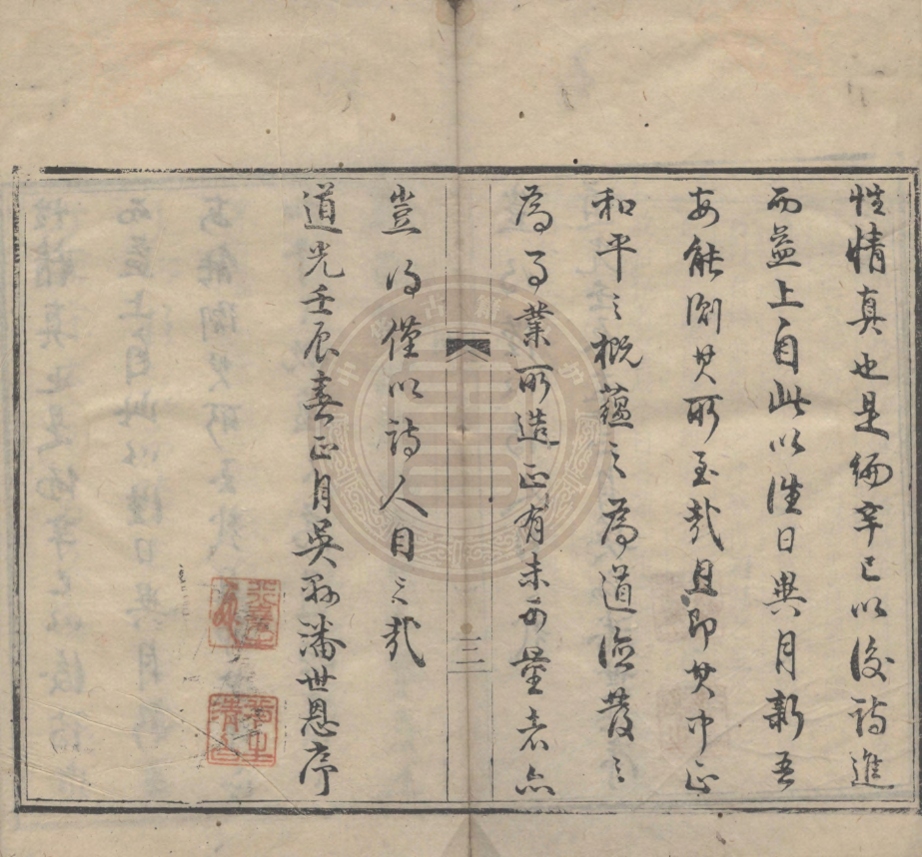 性情真也是編辛巳以後詩進
而益上自此以往日異月新吾
安能測其所至哉且即其中正
和平之概蘊之為道德發之
為事業所造正有未可量者亦
三
豈得僅以詩人目之哉
道光壬辰春正月吳縣潘世恩序